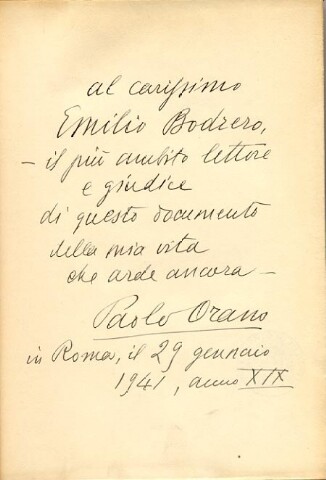 al carissimo
Emilio Bodrero,
— il più ambito lettore
e giudice
di questo documento
della mia vita
che arde ancora —
Paolo Orano
in Roma, il 29 gennaio
1941, anno XIX